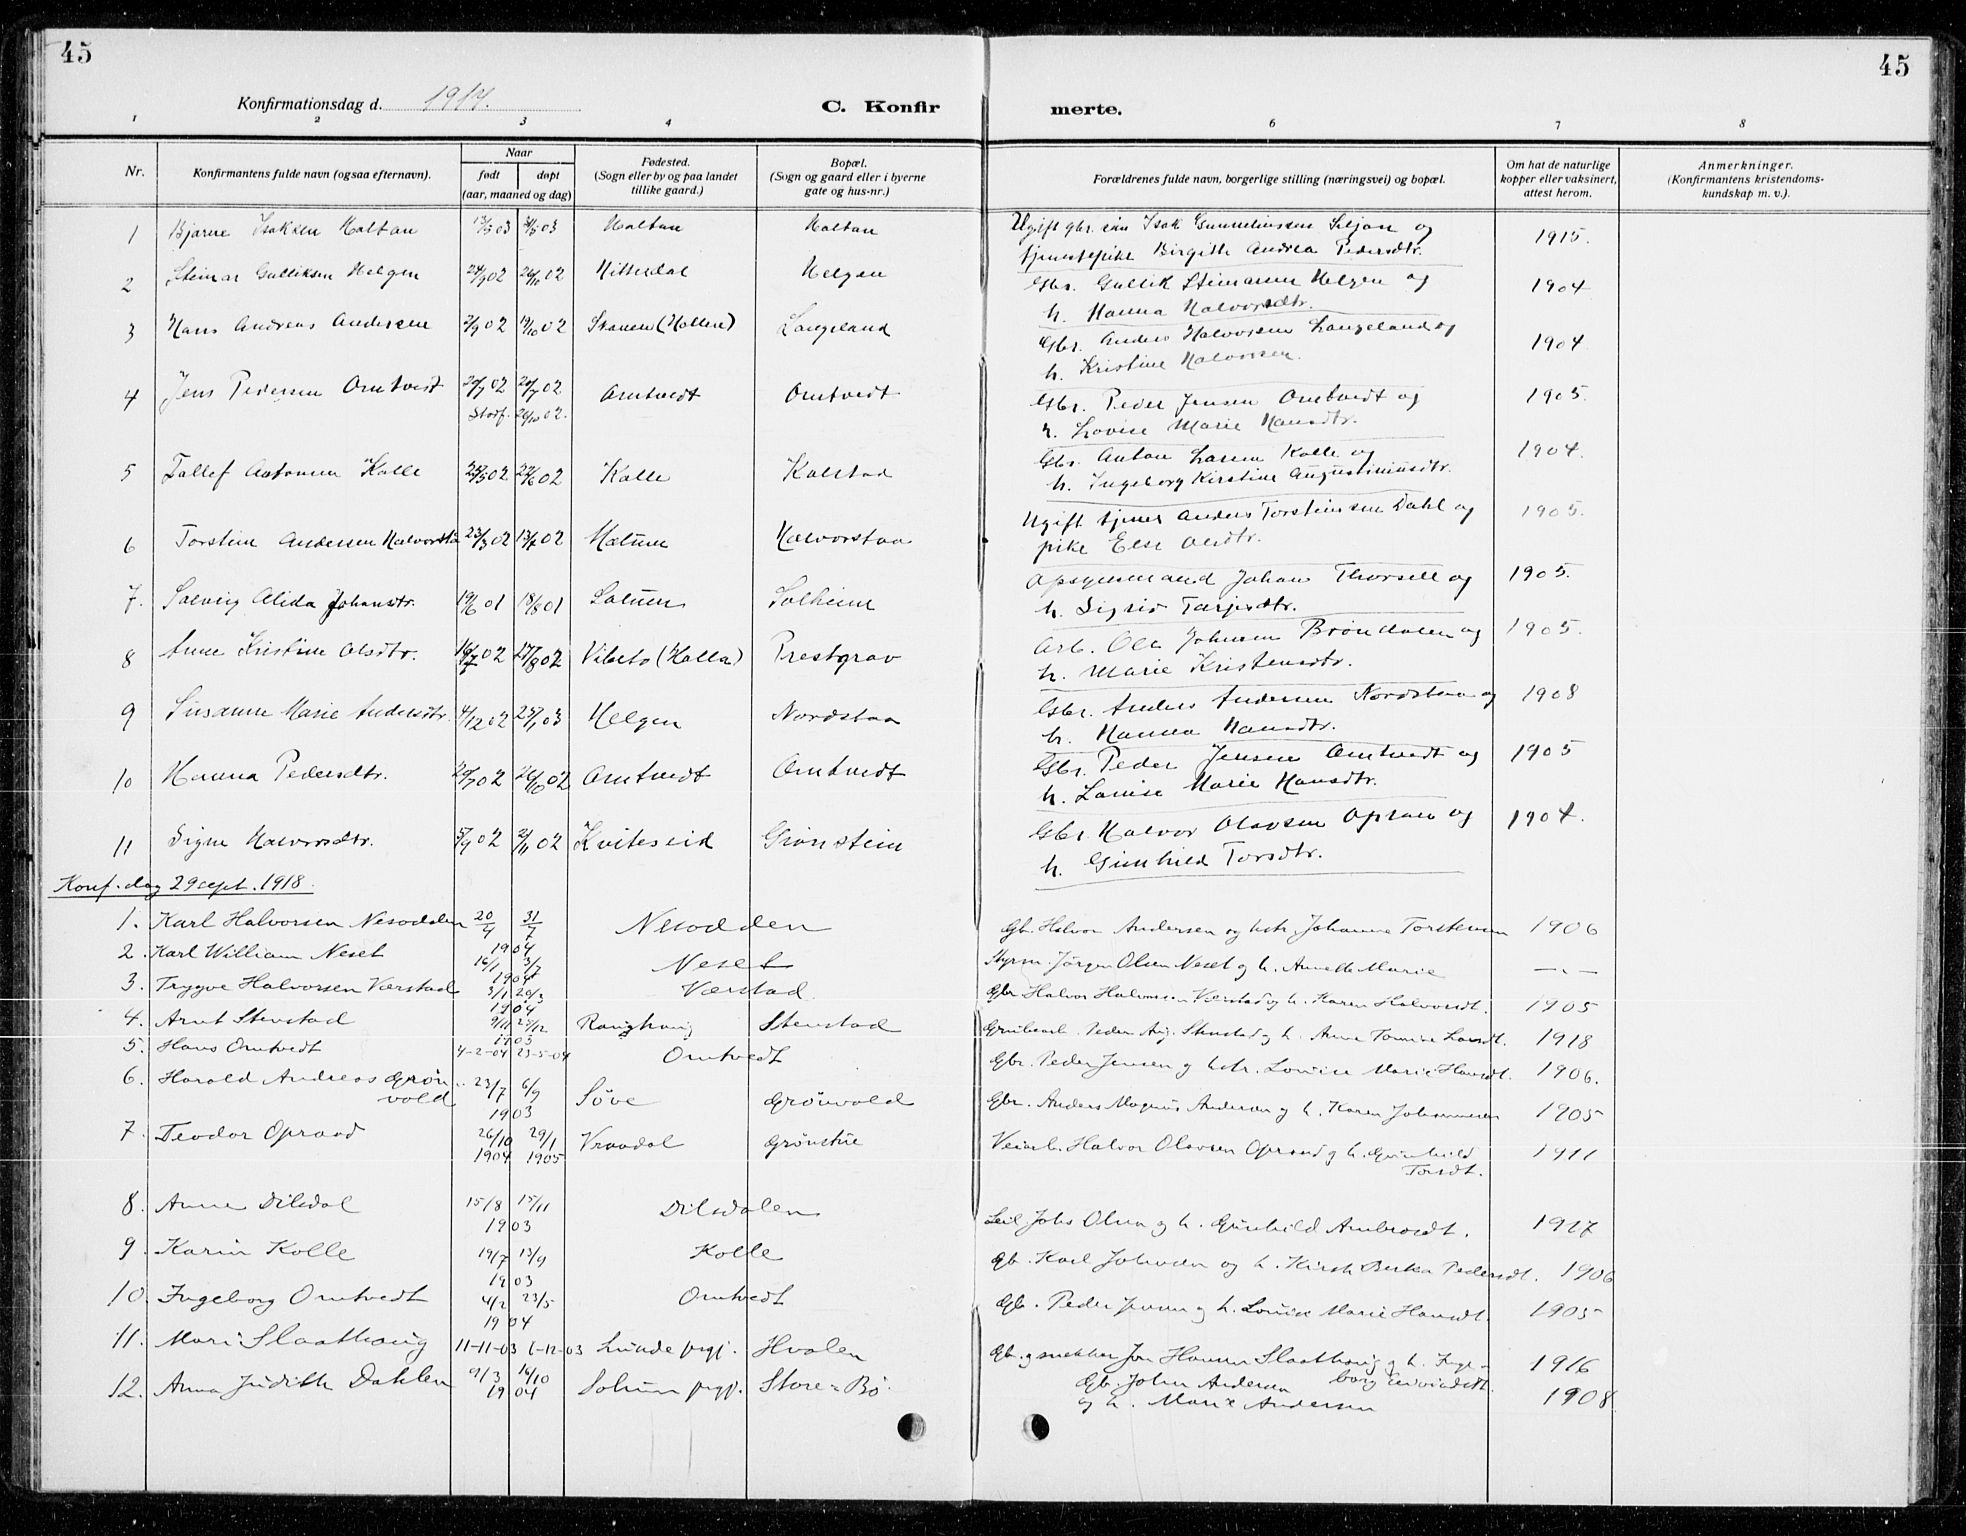 45
45
Konfirmationsdag d. 1917.
C. Konfir
merte.
1 2 3 4 6 7 8
Nr.
Konfirmantens fulde navn (ogsaa efternavn).
Naar
født
døpt
(aar, maaned og dag)
Fødested.
(Sogn eller by og paa landet
tillike gaard.)
Bopæl.
(Sogn og gaard eller i byerne
gate og hus-nr.)
Forældrenes fulde navn, borgerlige stilling (næringsvei) og bopæl.
Om hat de naturlige
kopper eller vaksinert,
attest herom.
Anmerkninger.
(Konfirmantens kristendoms-
kundskap m. v.)
1 Bjarne Isaksen Holtan 13/5 03 31/5 03 Holtan Holtan Ugift gbr. søn Isak Gunnelinssen Siljan og 1915.
tjenestepike Birgith Andrea Pedersdtr.
2 Steinar Gulliksen Helgen 24/9 02 26/10 02 Hitterdal Helgen Gbr. Gullik Steinarsen Helgen og 1904
h. Hanna Halvorsdtr.
3 Hans Andreas Andersen 2/9 02 19/10 02 (Hollen) Langeland Gbr. Anders Halvorsen Langeland og 1904
h. Kristine Halvorsen.
4 Jens Pedersen Omtvedt 20/7 02 20/7 02 Omtvedt Omtvedt Gbr. Peder Jensen Omtvedt og 1905.
Stadf. 26/10 02. h. Lovise Marie Hansdtr.
5 Tallef Antonsen Kolle 25/5 02 22/6 02 Kolle Kolstad Gbr. Anton Larsen Kolle og 1904.
h. Ingeborg Kirstine Augustiniusdtr.
6 Torstein Andersen Halvorstå 23/3 02 13/7 02 Mælum Halvorstaa Ugift tjener Anders Torsteinsen Dahl og 1905.
pike Else Olsdtr.
7. Solveig Alida Johansdtr. 19/6 01 18/8 01 Solum Solheim Opsynsmand Johan Thorsell og 1905.
h. Sigrid Tarjesdtr.
8 Anne Kristine Olsdtr. 16/7 02 17/8 02 Vibeto (Holla) Prestgrav Arb. Ole Johnsen Brøndalen og 1905.
h. Marie Kristensdtr.
9 Susanne Marie Andersdtr. 4/12 02 25/1 03 Helgen Nordstaa Gbr. Anders Andersen Nordstaa og 1908
h. Hanna Hansdtr.
10 Hanna Pedersdtr. 20/7 02 26/10 02 Omtvedt Omtvedt Gbr. Peder Jensen Omtvedt og 1905
h. Lovise Marie Hansdtr.
11 Signe Halvorsdtr. 5/9 02 2/11 02 Kviteseid Grønstein Gbr. Halvor Olavsen Opraae og 1904.
h. Gunhild Torsdtr.
Konf. dag 29 sept. 1918.
1. Karl Halvorsen Nesodden 20/4 31/7 Nesodden Gb. Halvor Andersen og hstr. Johanne Torstensen 1906
1904
2. Karl William Neset 16/1 3/7 Neset Styrm. Jørgen Olsen Neset og h. Annette Marie —.—
1904
3. Trygve Halvorsen Værstad 3/1 20/3 Værstad Gbr Halvor Halvorsen Værstad og h. Karen Halvorsdt. 1905
1904
4. Arnt Stenstad 9/11 25/12 Raughaug Stenstad Grubearb. Peder Aug. Stenstad og h. Anne Tomine Larsdt. 1918
1903
5. Hans Omtvedt 4-2-04 23-5-04 Omtvedt Gbr. Peder Jensen og hstr. Louise Marie Hansdt. 1906.
6. Harald Andreas Grøn- 23/7 6/9 Søve Grønvold Gbr. Anders Magnus Andersen og h. Karen Johannesen 1905
vold 1903
7. Teodor Opraad 26/10 29/1 Vraadal Grønstie Veiarb. Halvor Olavsen Opraad og h. Gunhild 1911
1904 1905 Torsdt.
8. Anne Dilsdal 15/8 15/11 Dilsdalen Leil Johs Olsen og h. Gunhild Ambrosdt. 1917
1903
9. Karin Kolle 19/7 13/9 Kolle Gb. Karl Johnsen og h. Kirste Berta Pedersdt. 1906
1903
10. Ingeborg Omtvedt 4/2 23/5 Omtvedt Gb. Peder Jensen og h. Louise Marie Hansdt. 1905
1904
11. Mari Slaathaug 11-11-03 6-12-03 Lunde prgj. Hvalen Gb. og snekker Jon Hansen Slaathaug og h. Inge- 1916
borg Eivindsdt.
12. Anna Judith Dahlen 9/3 16/10 Solum prgj. Store-Bø. Gb. John Andersen 1908
1904 og h. Marie Andersen